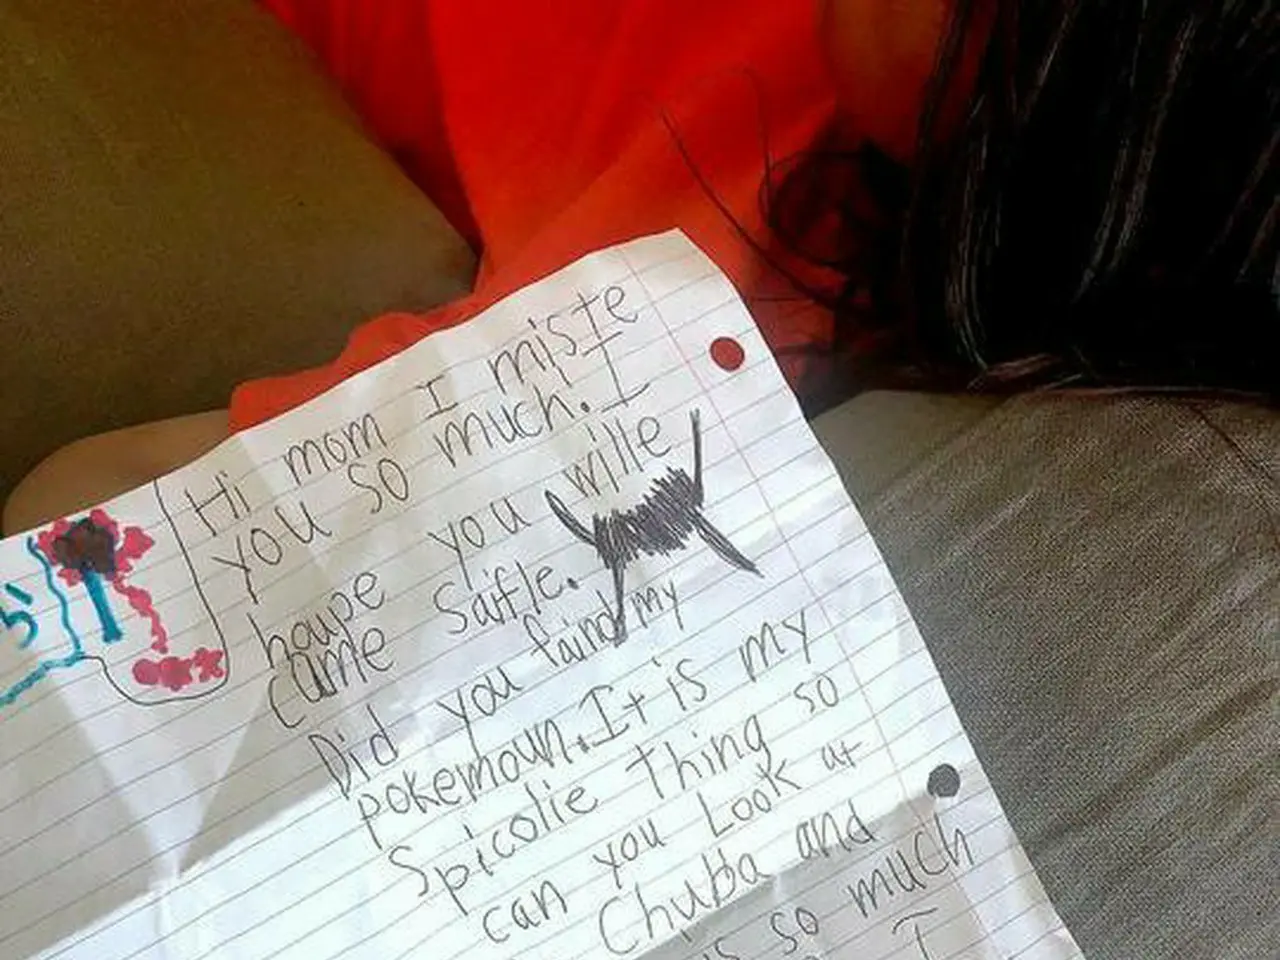 Hi mom I miste
you so much. I
houpe you wille
came Saifle.
Did you faind my
pokemoun. It is my
Spicolie thing so
can you Look at
Chubba and
is so much
I